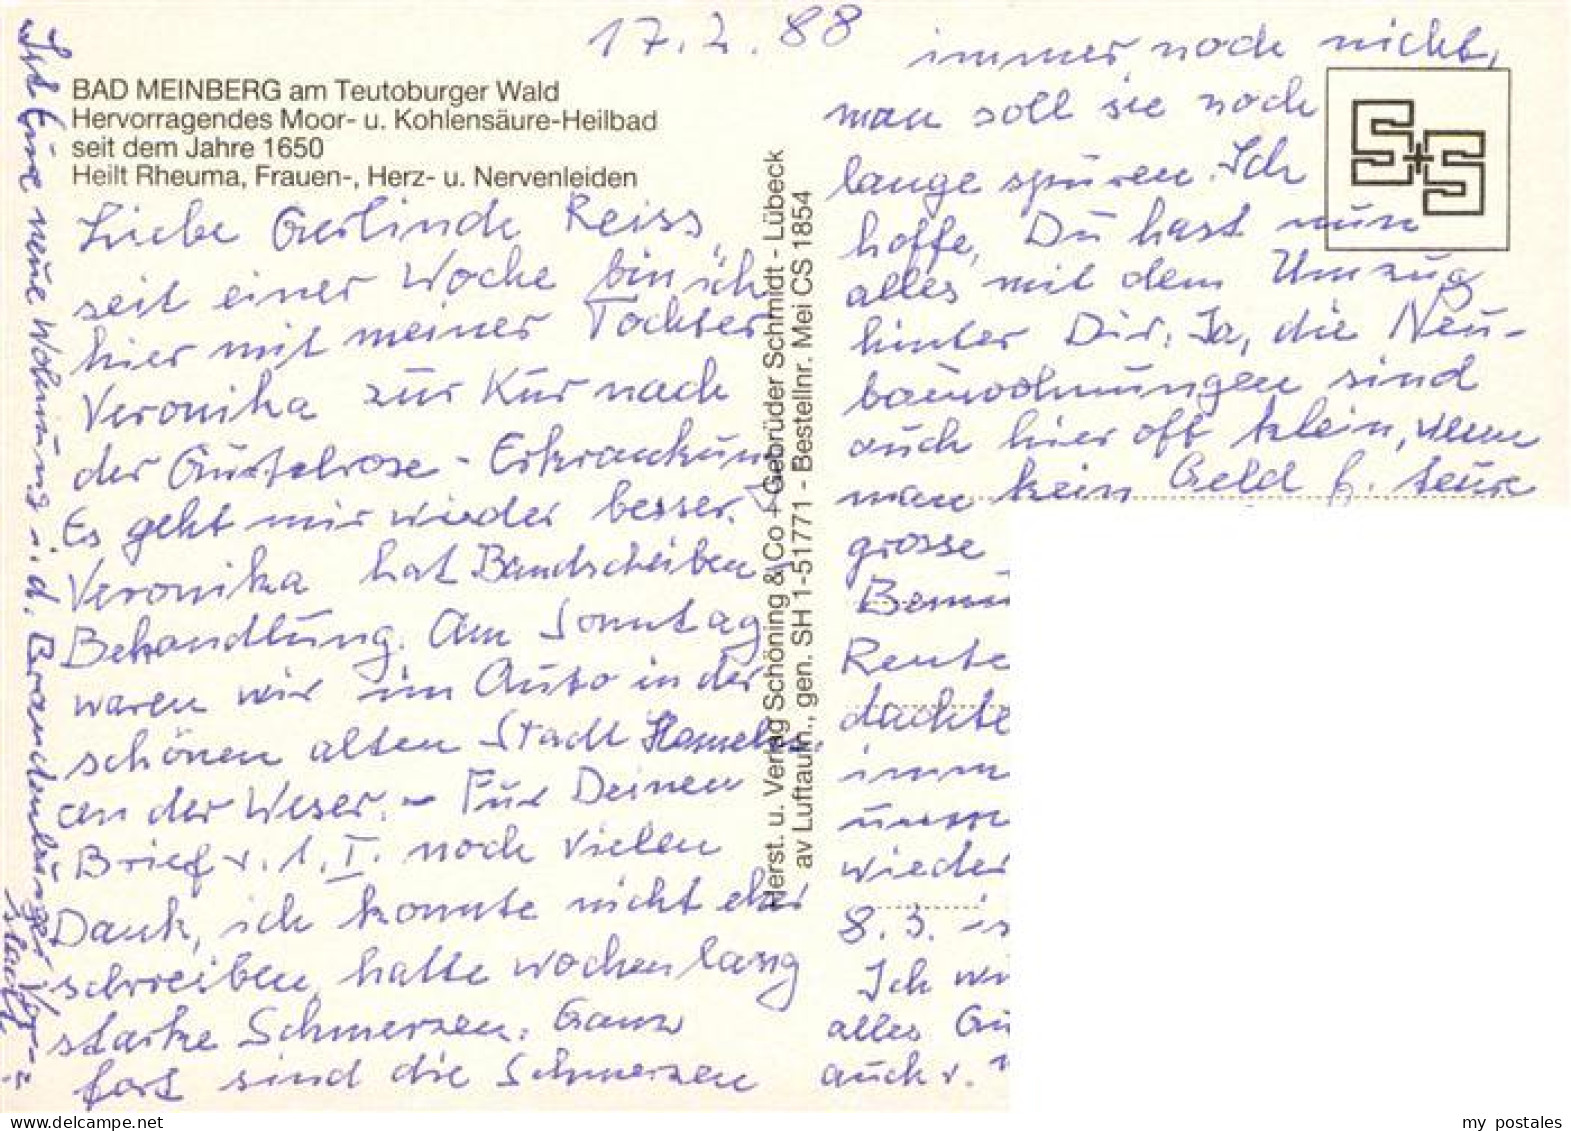 17.2.88
BAD MEINBERG am Teutoburger Wald
Hervorragendes Moor- u. Kohlensäure-Heilbad
seit dem Jahre 1650
Heilt Rheuma, Frauen-, Herz- u. Nervenleiden
Liebe Gerlinde Reiss,
seit einer Woche bin ich
hier mit meiner Tochter
Veronika zur Kur nach
der Gürtelrose-Erkrankung
Es geht mir wieder besser.
Veronika hat Bandscheiben
Behandlung. Am Sonntag
waren wir im Auto in der
schönen alten Stadt Hameln
an der Weser. - Für Deinen
Brief v. 1.I. noch vielen
Dank, ich konnte nicht eher
schreiben, hatte wochenlang
starke Schmerzen. Ganz
fort sind die Schmerzen
immer noch nicht,
man soll sie noch
lange spüren. Ich
hoffe, Du hast nun
alles mit dem Umzug
hinter Dir. Ja, die Neu-
bauwohnungen sind
auch hier oft klein, wenn
man kein Geld f. teure
grosse
Rente
dachte
imm
unse
wieder
8.3. is
Ich wi
alles Gu
auch v.
Ist Eure neue Wohnung i. d. Brandenburger Vor-
stadt?
Herst. u. Verlag Schöning & Co + Gebrüder Schmidt - Lübeck
av Luftaufn., gen. SH 1-51771 - Bestellnr. Mei CS 1854
S+S
my postales